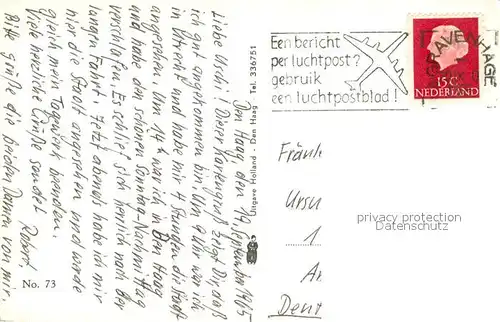 Den Haag, den 19. September 1965
Liebe Ursel! Dieser Kartengruß zeigt Dir, daß
ich gut angekommen bin. Um 9 Uhr war ich
in Utrecht und habe mir 4 Stunden die Stadt
angesehen. Um 14 h war ich in Den Haag
und habe den schönen Sonntag-Nachmittag
verschlafen. Es schlief sich herrlich nach der
langen Fahrt. Jetzt abends habe ich mir
hier die Stadt angesehen und werde
gleich mein Tagwerk beenden.
Viele herzliche Grüße sendet Robert.
Bitte grüße die beiden Damen von mir.
No. 73
Uitgave Holland - Den Haag Tel. 336751
Een bericht
per luchtpost?
gebruik
een luchtpostblad!
GRAVENHAGE
15 C
NEDERLAND
Fräul
Ursu
1
privacy protection
Datenschutz